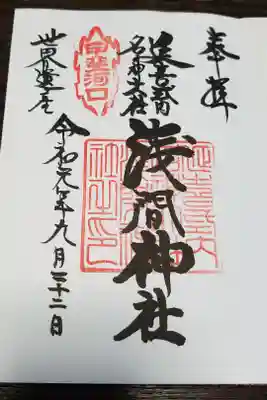 奉拝
延喜式内
名神大社
浅間神社
甲斐河口
世界遺産
令和元年九月二十二日